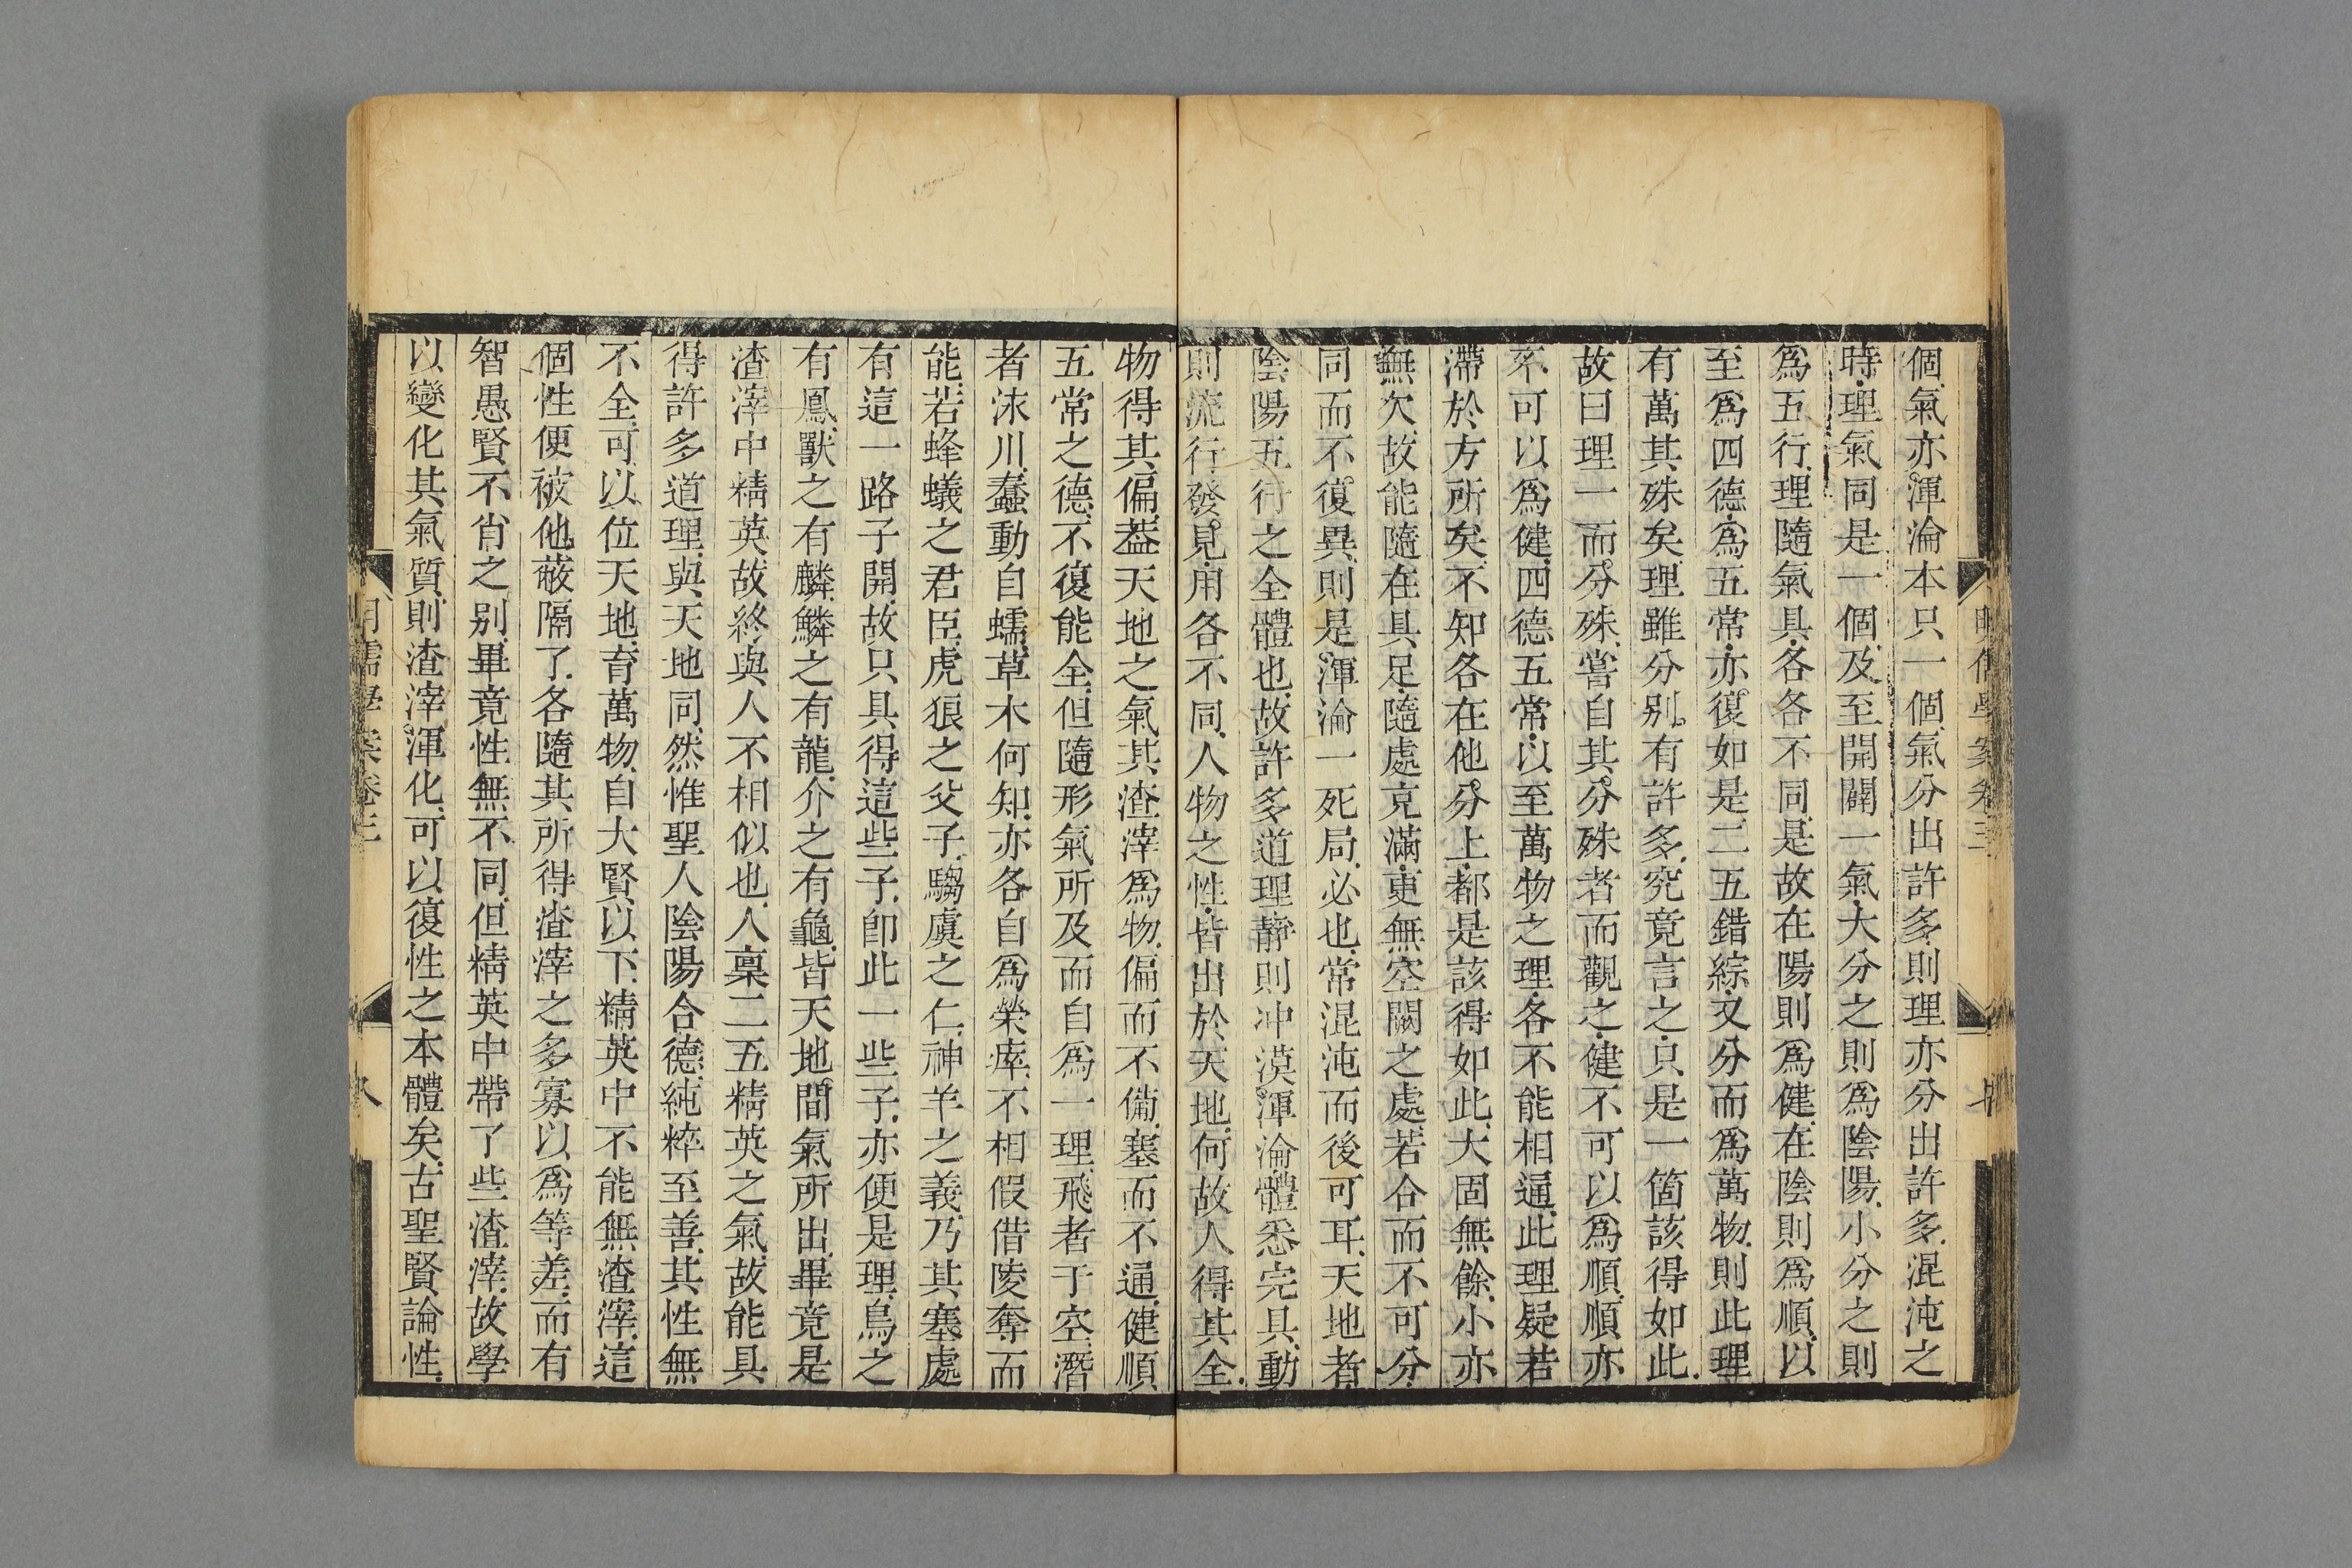 個氣亦渾淪本只一個氣分出許多則理亦分出許多混沌之
時理氣同是一個及至開闢一氣大分之則爲陰陽小分之則
爲五行理隨氣具各各不同是故在陽則爲健在陰則爲順以
至爲四德爲五常亦復如是二五錯綜又分而爲萬物則此理
有萬其殊矣理雖分別有許多究竟言之只是一箇該得如此
故曰理一而分殊嘗自其分殊者而觀之健不可以爲順順亦
不可以爲健四德五常以至萬物之理各不能相通此理疑若
滯於方所矣不知各在他分上都是該得如此大固無餘小亦
無欠故能隨在具足隨處充滿更無空闕之處若合而不可分
同而不復異則是渾淪一死局必也常混沌而後可耳天地者
陰陽五行之全體也故許多道理靜則冲漠渾淪體悉完具動
則流行發見用各不同人物之性皆出於天地何故人得其全
物得其偏葢天地之氣其渣滓爲物偏而不備塞而不通健順
五常之德不復能全但隨形氣所及而自爲一理飛者于空潛
者沫川蠢動自蠕草木何知亦各自爲榮瘁不相假借陵奪而
能若蜂蟻之君臣虎狼之父子騶虞之仁神羊之義乃其塞處
有這一路子開故只具得這些子卽此一些子亦便是理鳥之
有鳳獸之有麟鱗之有龍介之有龜皆天地間氣所出畢竟是
渣滓中精英故終與人不相似也人稟二五精英之氣故能具
得許多道理與天地同然惟聖人陰陽合德純粹至善其性無
不全可以位天地育萬物自大賢以下精英中不能無渣滓這
個性便被他蔽隔了各隨其所得渣滓之多寡以爲等差而有
智愚賢不肖之別畢竟性無不同但精英中帶了些渣滓故學
以變化其氣質則渣滓渾化可以復性之本體矣古聖賢論性
明儒學案卷三
八